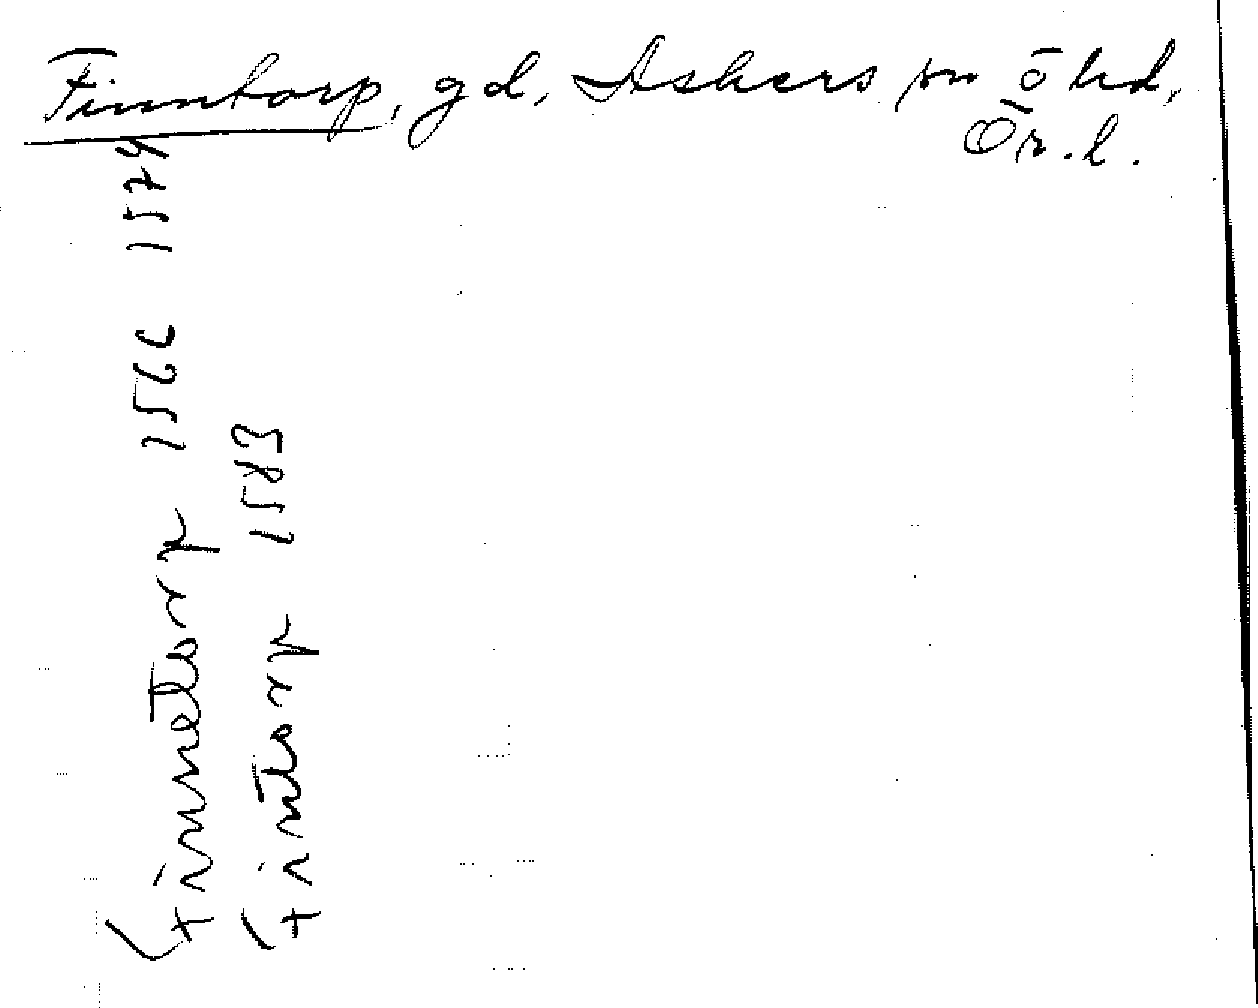 Finntorp, gd, Askers sn ö hd,
Ör. l.
Finnetorp 1566 1574
Fintorp 1583